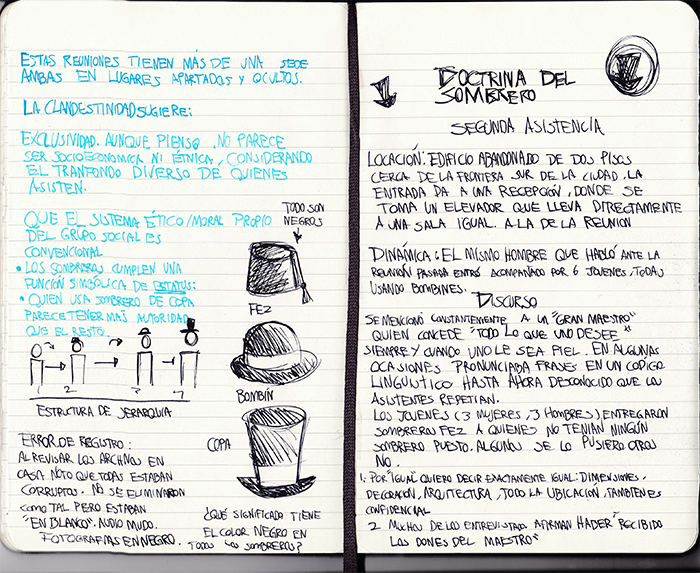 ESTAS REUNIONES TIENEN MÁS DE UNA SEDE
AMBAS EN LUGARES APARTADOS Y OCULTOS.
LA CLANDESTINIDAD SUGIERE:
EXCLUSIVIDAD. AUNQUE PIENSO, NO PARECE
SER SOCIOECONOMICA NI ÉTNICA, CONSIDERANDO
EL TRANFONDO DIVERSO DE QUIENES
ASISTEN.
QUE EL SISTEMA ÉTICO/MORAL PROPIO
DEL GRUPO SOCIAL ES
CONVENCIONAL
• LOS SOMBREROS CUMPLEN UNA
FUNCIÓN SIMBÓLICA DE ESTATUS:
• QUIEN USA SOMBRERO DE COPA
PARECE TENER MÁS AUTORIDAD
QUE EL RESTO.
TODO SON
NEGROS
FEZ
BOMBÍN
COPA
1 2 3 4
ESTRUCTURA DE JERARQUIA
ERROR DE REGISTRO:
AL REVISAR LOS ARCHIVOS EN
CASA NOTO QUE TODAS ESTABAN
CORRUPTOS. NO SE ELIMINARON
COMO TAL PERO ESTABAN
"EN BLANCO". AUDIO MUDO.
FOTOGRAFIAS EN NEGRO.
¿QUÉ SIGNIFICADA TIENE
EL COLOR NEGRO EN
TODOS LOS SOMBREROS?
DOCTRINA DEL
SOMBRERO
SEGUNDA ASISTENCIA
LOCACIÓN: EDIFICIO ABANDONADO DE DOS PISOS
CERCA DE LA FRONTERA SUR DE LA CIUDAD. LA
ENTRADA DA A UNA RECEPCIÓN, DONDE SE
TOMA UN ELEVADOR QUE LLEVA DIRECTAMENTE
A UNA SALA IGUAL. A LA DE LA REUNION
DINÁMICA: EL MISMO HOMBRE QUE HABLÓ ANTE LA
REUNIÓN PASADA ENTRÓ ACOMPAÑADO POR 6 JOVENES, TODAS
USANDO BOMBINES.
DISCURSO
SE MENCIONÓ CONSTANTEMENTE A UN "GRAN MAESTRO"
QUIEN CONCEDE "TODO LO QUE UNO DESEE"
SIEMPRE Y CUANDO UNO LE SEA FIEL. EN ALGUNAS
OCASIONES PRONUNCIABA FRASES EN UN CODIGO
LINGÜISTICO HASTA AHORA DESCONOCIDO QUE LOS
ASISTENTES REPETIAN.
LOS JOVENES (3 MUJERES, 3 HOMBRES), ENTREGARON
SOMBREROS FEZ A QUIENES NO TENIAN NINGÚN
SOMBRERO PUESTO. ALGUNOS SE LO PUSIERON OTROS
NO.
1. POR "IGUAL" QUIERO DECIR EXACTAMENTE IGUAL: DIMENSIONES,
DECORACIÓN, ARQUITECTURA, TODO. LA UBICACIÓN, TAMBIEN ES
CONFIDENCIAL
2. MUCHOS DE LOS ENTREVISTADOS AFIRMAN HABER "RECIBIDO
LOS DONES DEL MAESTRO"